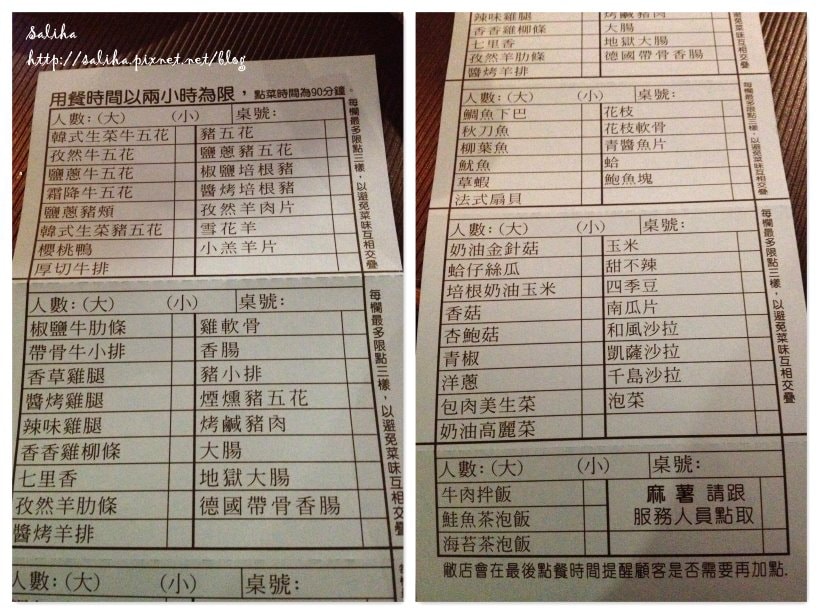 Saliha
http://saliha.pixnet.net/blog
用餐時間以兩小時為限，點菜時間為90分鐘。
人數：(大) (小) 桌號：
韓式生菜牛五花 豬五花
孜然牛五花 鹽蔥豬五花
鹽蔥牛五花 椒鹽培根豬
霜降牛五花 醬烤培根豬
鹽蔥豬頰 孜然羊肉片
韓式生菜豬五花 雪花羊
櫻桃鴨 小羔羊片
厚切牛排
每欄最多限點三樣，以避免菜味互相交疊
人數：(大) (小) 桌號：
椒鹽牛肋條 雞軟骨
帶骨牛小排 香腸
香草雞腿 豬小排
醬烤雞腿 煙燻豬五花
辣味雞腿 烤鹹豬肉
香香雞柳條 大腸
七里香 地獄大腸
孜然羊肋條 德國帶骨香腸
醬烤羊排
每欄最多限點三樣，以避免菜味互相交疊
人數：(大) (小) 桌號：
辣味雞腿 烤鹹豬肉
香香雞柳條 大腸
七里香 地獄大腸
孜然羊肋條 德國帶骨香腸
醬烤羊排
以避免菜味互相交疊
人數：(大) (小) 桌號：
鯛魚下巴 花枝
秋刀魚 花枝軟骨
柳葉魚 青醬魚片
魷魚 蛤
草蝦 鮑魚塊
法式扇貝
每欄最多限點三樣，以避免菜味互相交疊
人數：(大) (小) 桌號：
奶油金針菇 玉米
蛤仔絲瓜 甜不辣
培根奶油玉米 四季豆
香菇 南瓜片
杏鮑菇 和風沙拉
青椒 凱薩沙拉
洋蔥 千島沙拉
包肉美生菜 泡菜
奶油高麗菜
每欄最多限點三樣，以避免菜味互相交疊
人數：(大) (小) 桌號：
牛肉拌飯 麻薯 請跟
鮭魚茶泡飯 服務人員點取
海苔茶泡飯
敝店會在最後點餐時間提醒顧客是否需要再加點.